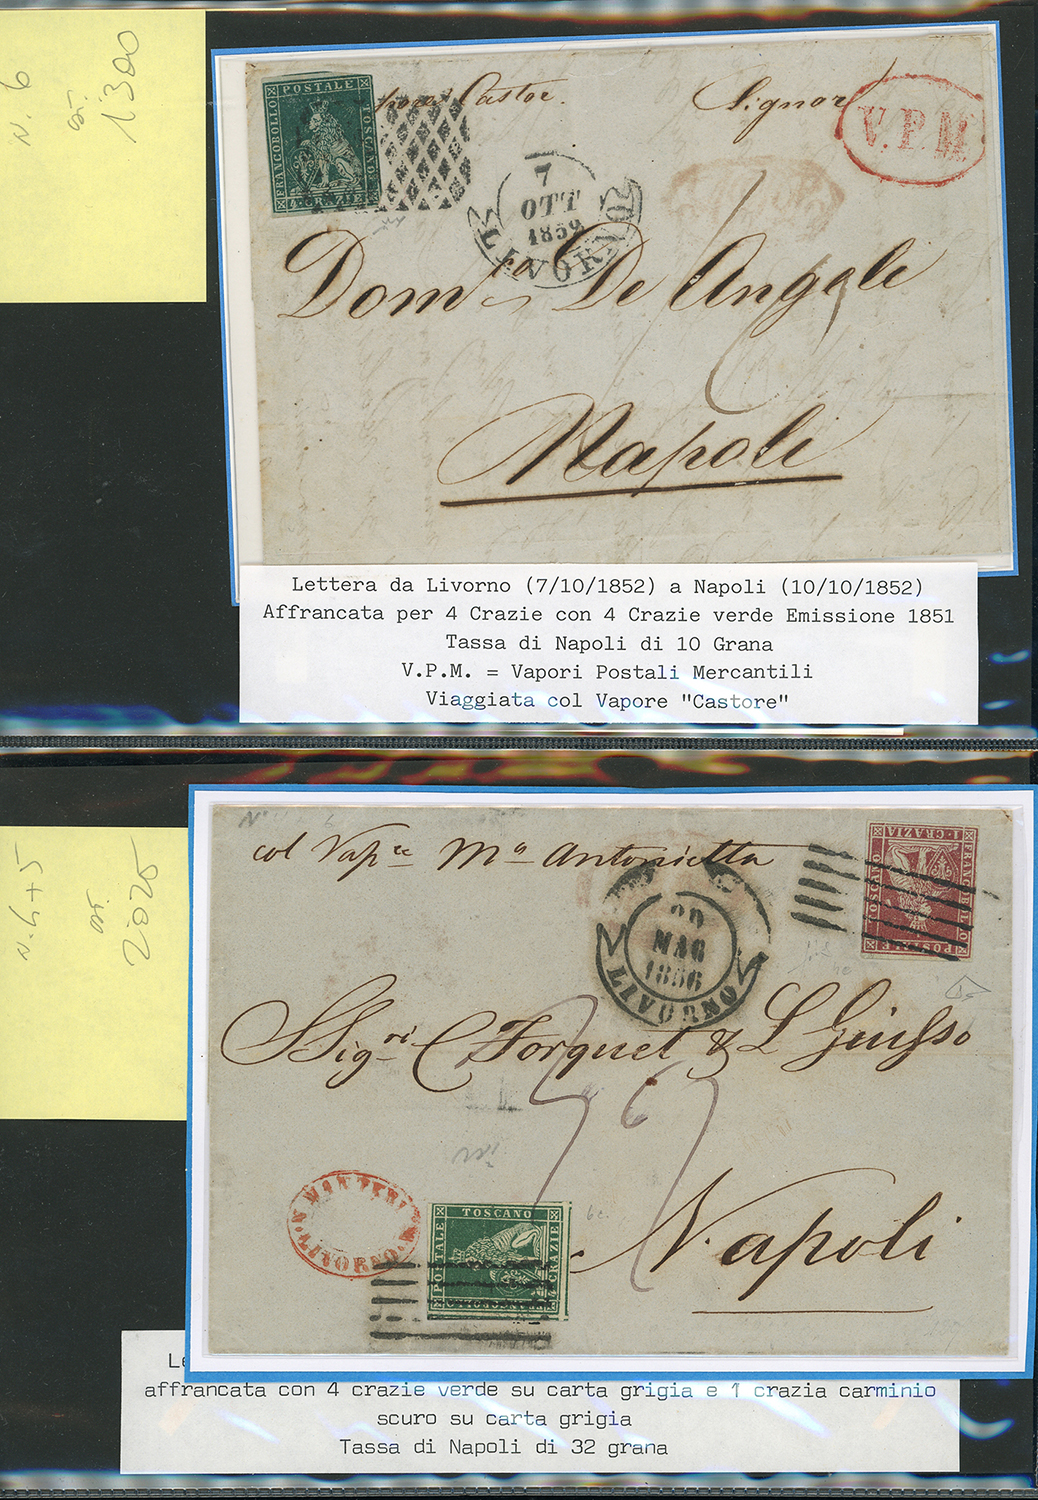 N. 6
1300
FRANCOBOLLO
POSTALE
TOSCANO
4·CRAZIE
Castore.
Signor
V.P.M
7
OTT
1852
LIVORNO
Dom.co De Angeli
Napoli
Lettera da Livorno (7/10/1852) a Napoli (10/10/1852)
Affrancata per 4 Crazie con 4 Crazie verde Emissione 1851
Tassa di Napoli di 10 Grana
V.P.M. = Vapori Postali Mercantili
Viaggiata col Vapore "Castore"
N. 4+5
2.025
col Vap.re M.a Antonietta
1·CRAZIA
FRANCOBOLLO
TOSCANO
POSTALE
MAG
1856
LIVORNO
SSig.ri C Forquet & L Giusso
Napoli
LIVORNO
POSTALE
TOSCANO
4 CRAZIE
FRANCOBOLLO
affrancata con 4 crazie verde su carta grigia e 1 crazia carminio
scuro su carta grigia
Tassa di Napoli di 32 grana